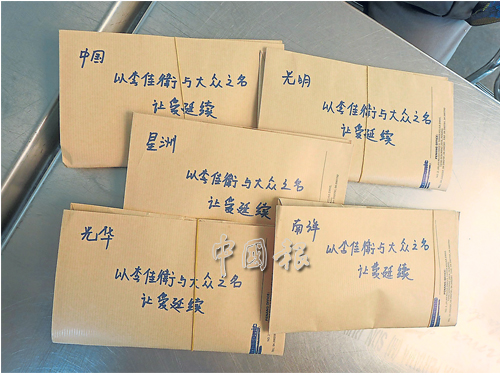 中国
以李佳衛与大众之名
让爱延续
光明
以李佳衛与大众之名
让爱延续
星洲
以李佳衛与大众之名
让爱延续
光华
以李佳衛与大众之名
让爱延续
南洋
以李佳衛与大众之名
让爱延续
中國報